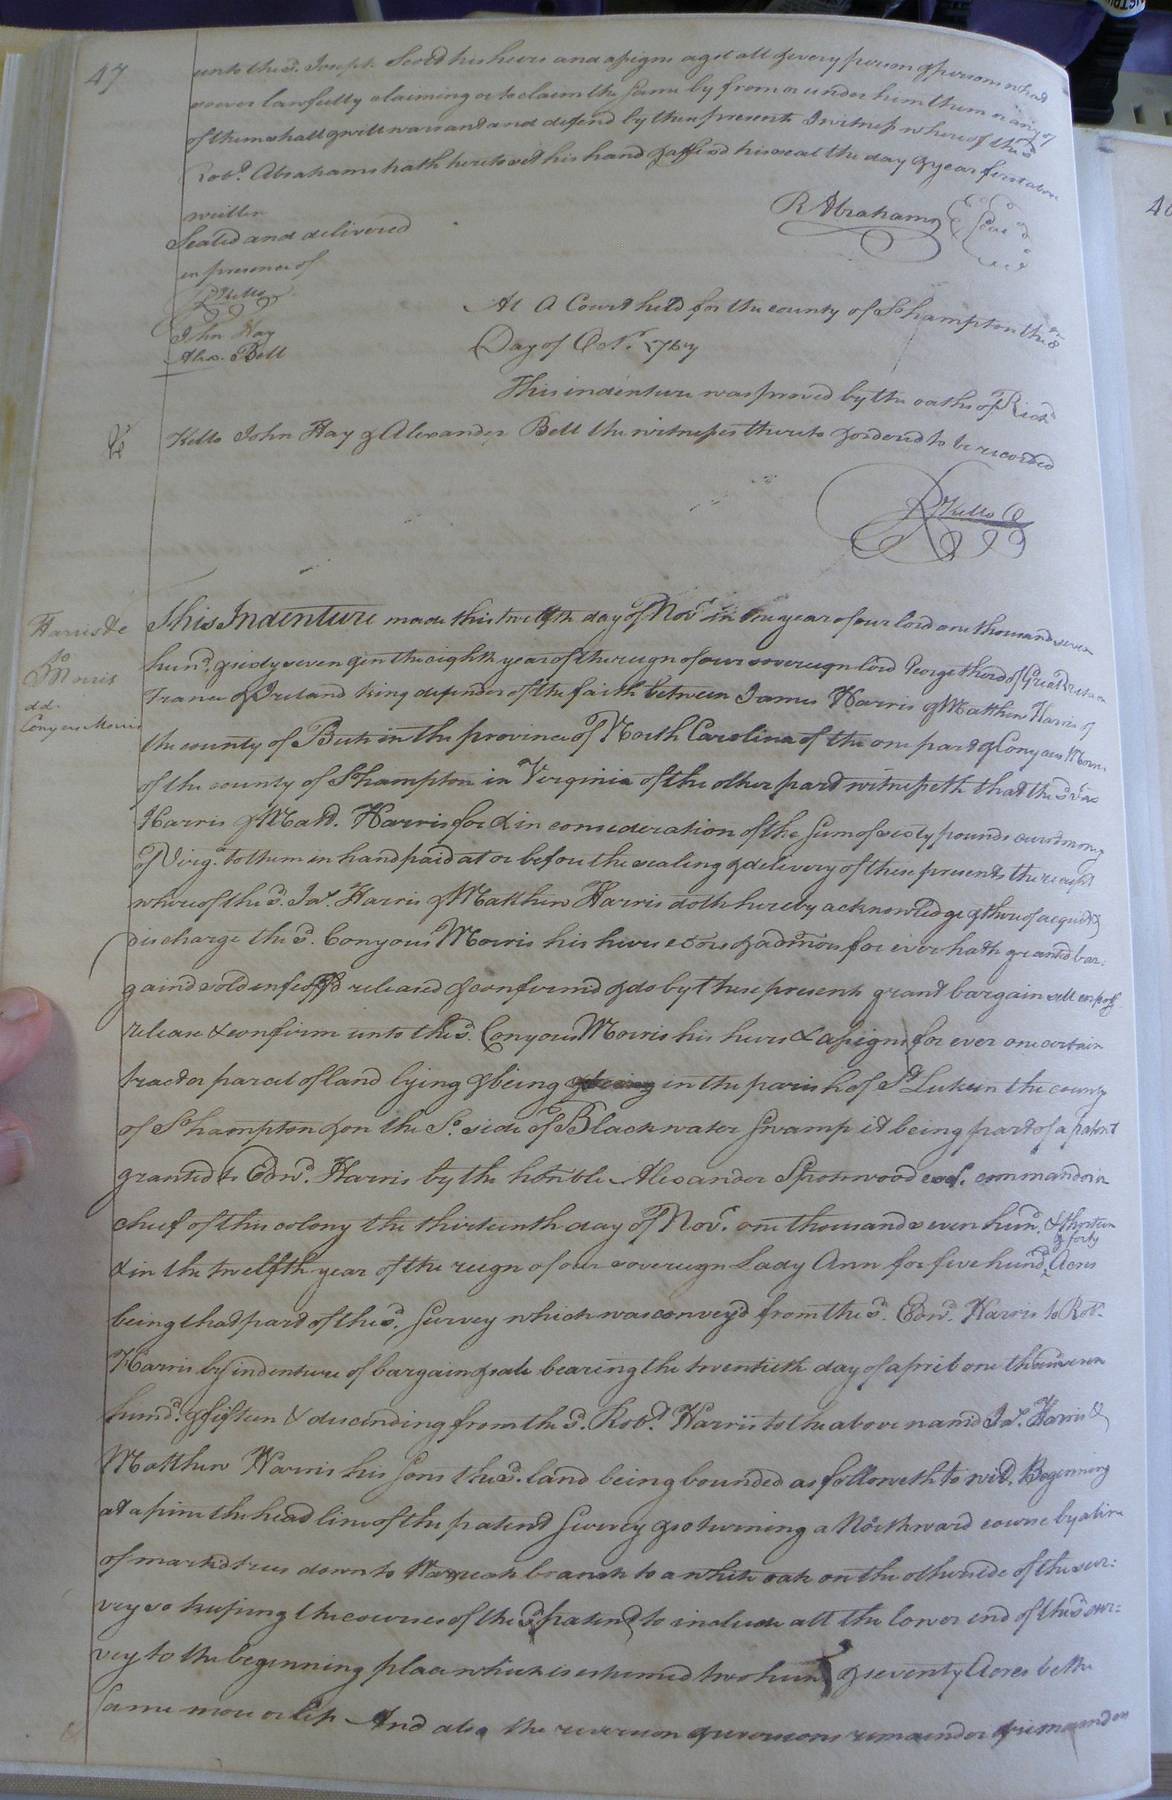 47
unto the sd. Joseph Scott his heirs and assigns agst all & every person & persons what
soever lawfully claiming or to claim the same by from or under him them or any of
of them shall & will warrant and defend by these presents In witness whereof the sd
Robt. Abraham hath hereto set his hand & affixd his seal the day & year first above
written
R Abraham
Seal
Sealed and delivered
in presence of
R Kello
John Hay
Alex. Bell
At A Court held for the county of So hampton the 8
Day of Octr. 1767
This indenture was proved by the oaths of Richd
Kello John Hay & Alexander Bell the witnesses thereto & ordered to be recorded
R Kello C
Harris &c
to
Morris
dd.
Conyers Morris
This Indenture made this twelfth day of Novr in the year of our lord one thousand seven
hund. & sixty seven & in the eighth year of the reign of our sovereign lord George third of Great Britain
France & Ireland king defender of the faith between James Harris & Matthew Harris of
the county of Bute in the province of North Carolina of the one part & Conyers Morris
of the county of So hampton in Virginia of the other part witnesseth that the sd Jas
Harris & Matt. Harris for & in consideration of the sum of sixty pounds curt money
of Virga. to them in hand paid at or before the sealing & delivery of these presents the receipt
whereof the sd. Jas. Harris & Matthew Harris doth hereby acknowledge & thereof acquit &
discharge the sd. Conyous Morris his heirs exors & admors for ever hath granted bar:
gaind sold enfeoffd released & confirmd & do by these presents grant bargain sell enfeoff
release & confirm unto the sd. Conyous Morris his heirs & assigns for ever one certain
tract or parcel of land lying & being in the parish of St Luke in the county
of So hampton & on the So. side of Blackwater Swamp it being part of a patent
granted to Edwd. Harris by the honble Alexander Spotswood commander in
chief of this colony the thirteenth day of Novr. one thousand seven hund. & thirteen
& in the twelfth year of the reign of our sovereign Lady Ann for five hund. & forty Acres
being that part of the sd. Survey which was conveyd from the sd. Edwd. Harris to Robt.
Harris by indenture of bargain & sale bearing the twentieth day of april one thou seven
hund. & fifteen & descending from the sd. Robt. Harris to the above namd Jas. Harris &
Matthew Harris his sons the sd. land being bounded as followeth to wit, Beginning
at a pine the head line of the patent Survey & so turning a Northward course by a line
of markd trees down to branch to a white oak on the other side of the sur:
vey so keeping the courses of the sd patent to include all the lower end of the sd sur:
vey to the beginning place which is esteemed two hund & seventy Acres be the
same more or less And also the reversion & reversions remainder & remainders